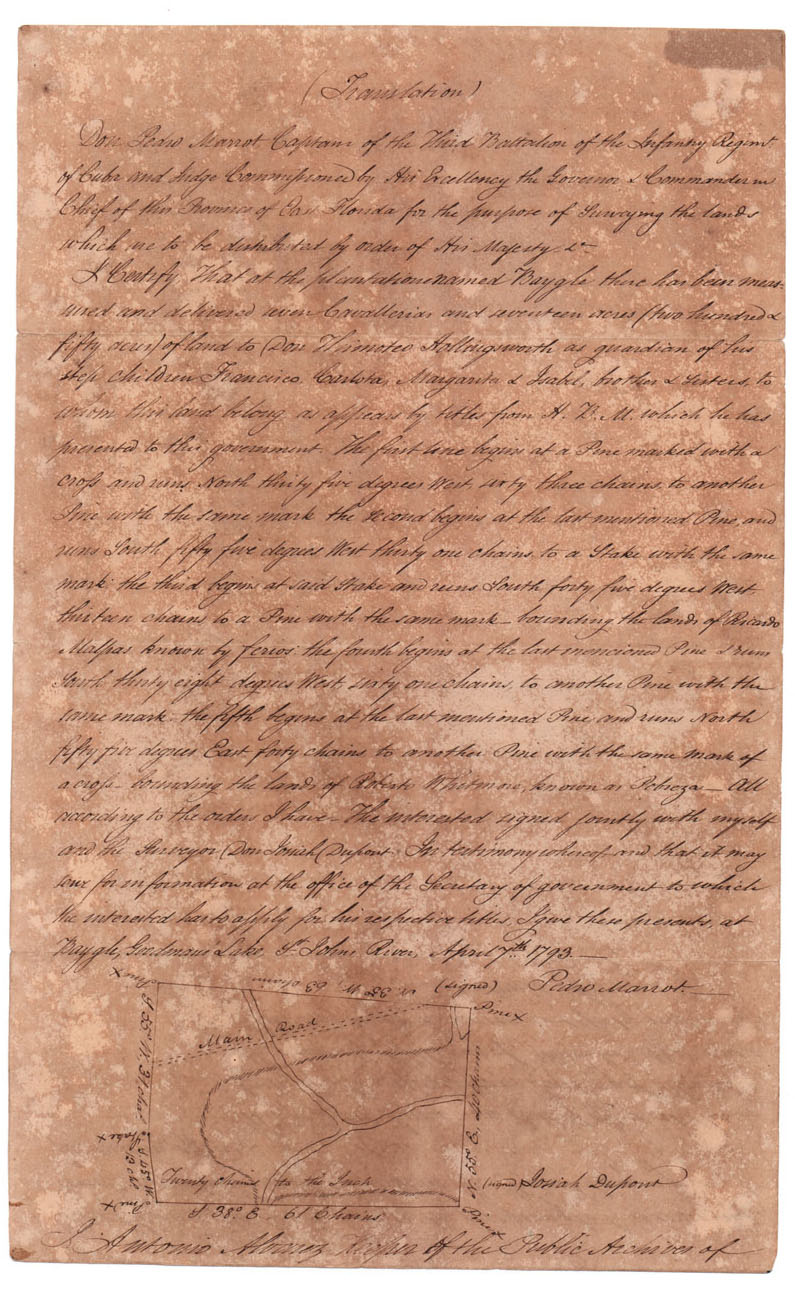 (Translation)
Don Pedro Marrot Captain of the Third Battalion of the Infantry Regim.t
of Cuba and Judge Commissioned by His Excellency the Governor & Commander in
Chief of this Province of East Florida for the purpose of Surveying the lands
which are to be distributed by order of His Majesty &c
I Certify That at the plantation named Baygle there has been meas-
ured and delivered seven Cavallerias and seventeen acres (two hundred &
fifty acres) of land to Don Thimoteo Hollingsworth as guardian of his
step children Francisco, Carlota, Margarita & Isabel, brother & Sisters, to
whom this land belong, as appears by titles from H. B. M. which he has
presented to this government. The first line begins at a Pine marked with a
cross and runs North thirty five degrees West sixty three chains, to another
Pine with the same mark the second begins at the last mentioned Pine, and
runs South fifty five degrees West thirty one chains to a Stake with the same
mark: the third begins at said Stake and runs South forty five degrees West
thirteen chains to a Pine with the same mark - bounding the lands of Ricardo
Malpas known by ferios: the fourth begins at the last mencioned Pine & runs
South thirty eight degrees West, sixty one chains, to another Pine with the
same mark: the fifth begins at the last mentioned Pine and runs North
fifty five degrees East forty chains to another Pine with the same mark of
a cross - bounding the lands of Roberto Whitmore, known as Potreza - All
according to the orders I have - The interested signed jointly with myself
and the Surveyor Don Josiah Dupont. In testimony whereof and that it may
serve for information at the office of the Secretary of government to which
the interested has to apply for his respective titles, I give these presents, at
Baygle, Goodmans Lake, St. Johns River, April 7th. 1793. -
(signed) Pedro Marrot.
Pine x
N. 35° W. 63 chains
Pine x
Main Road
S 55° W. 31 chs.
Stake x
S 45° W.
13 chs.
Pine x
N. 55° E. 40 chains
Twenty chains to the Inch
(signed) Josiah Dupont
S 38° E 61 Chains
Pine x
I Antonio Alvarez Keeper of the Public Archives of